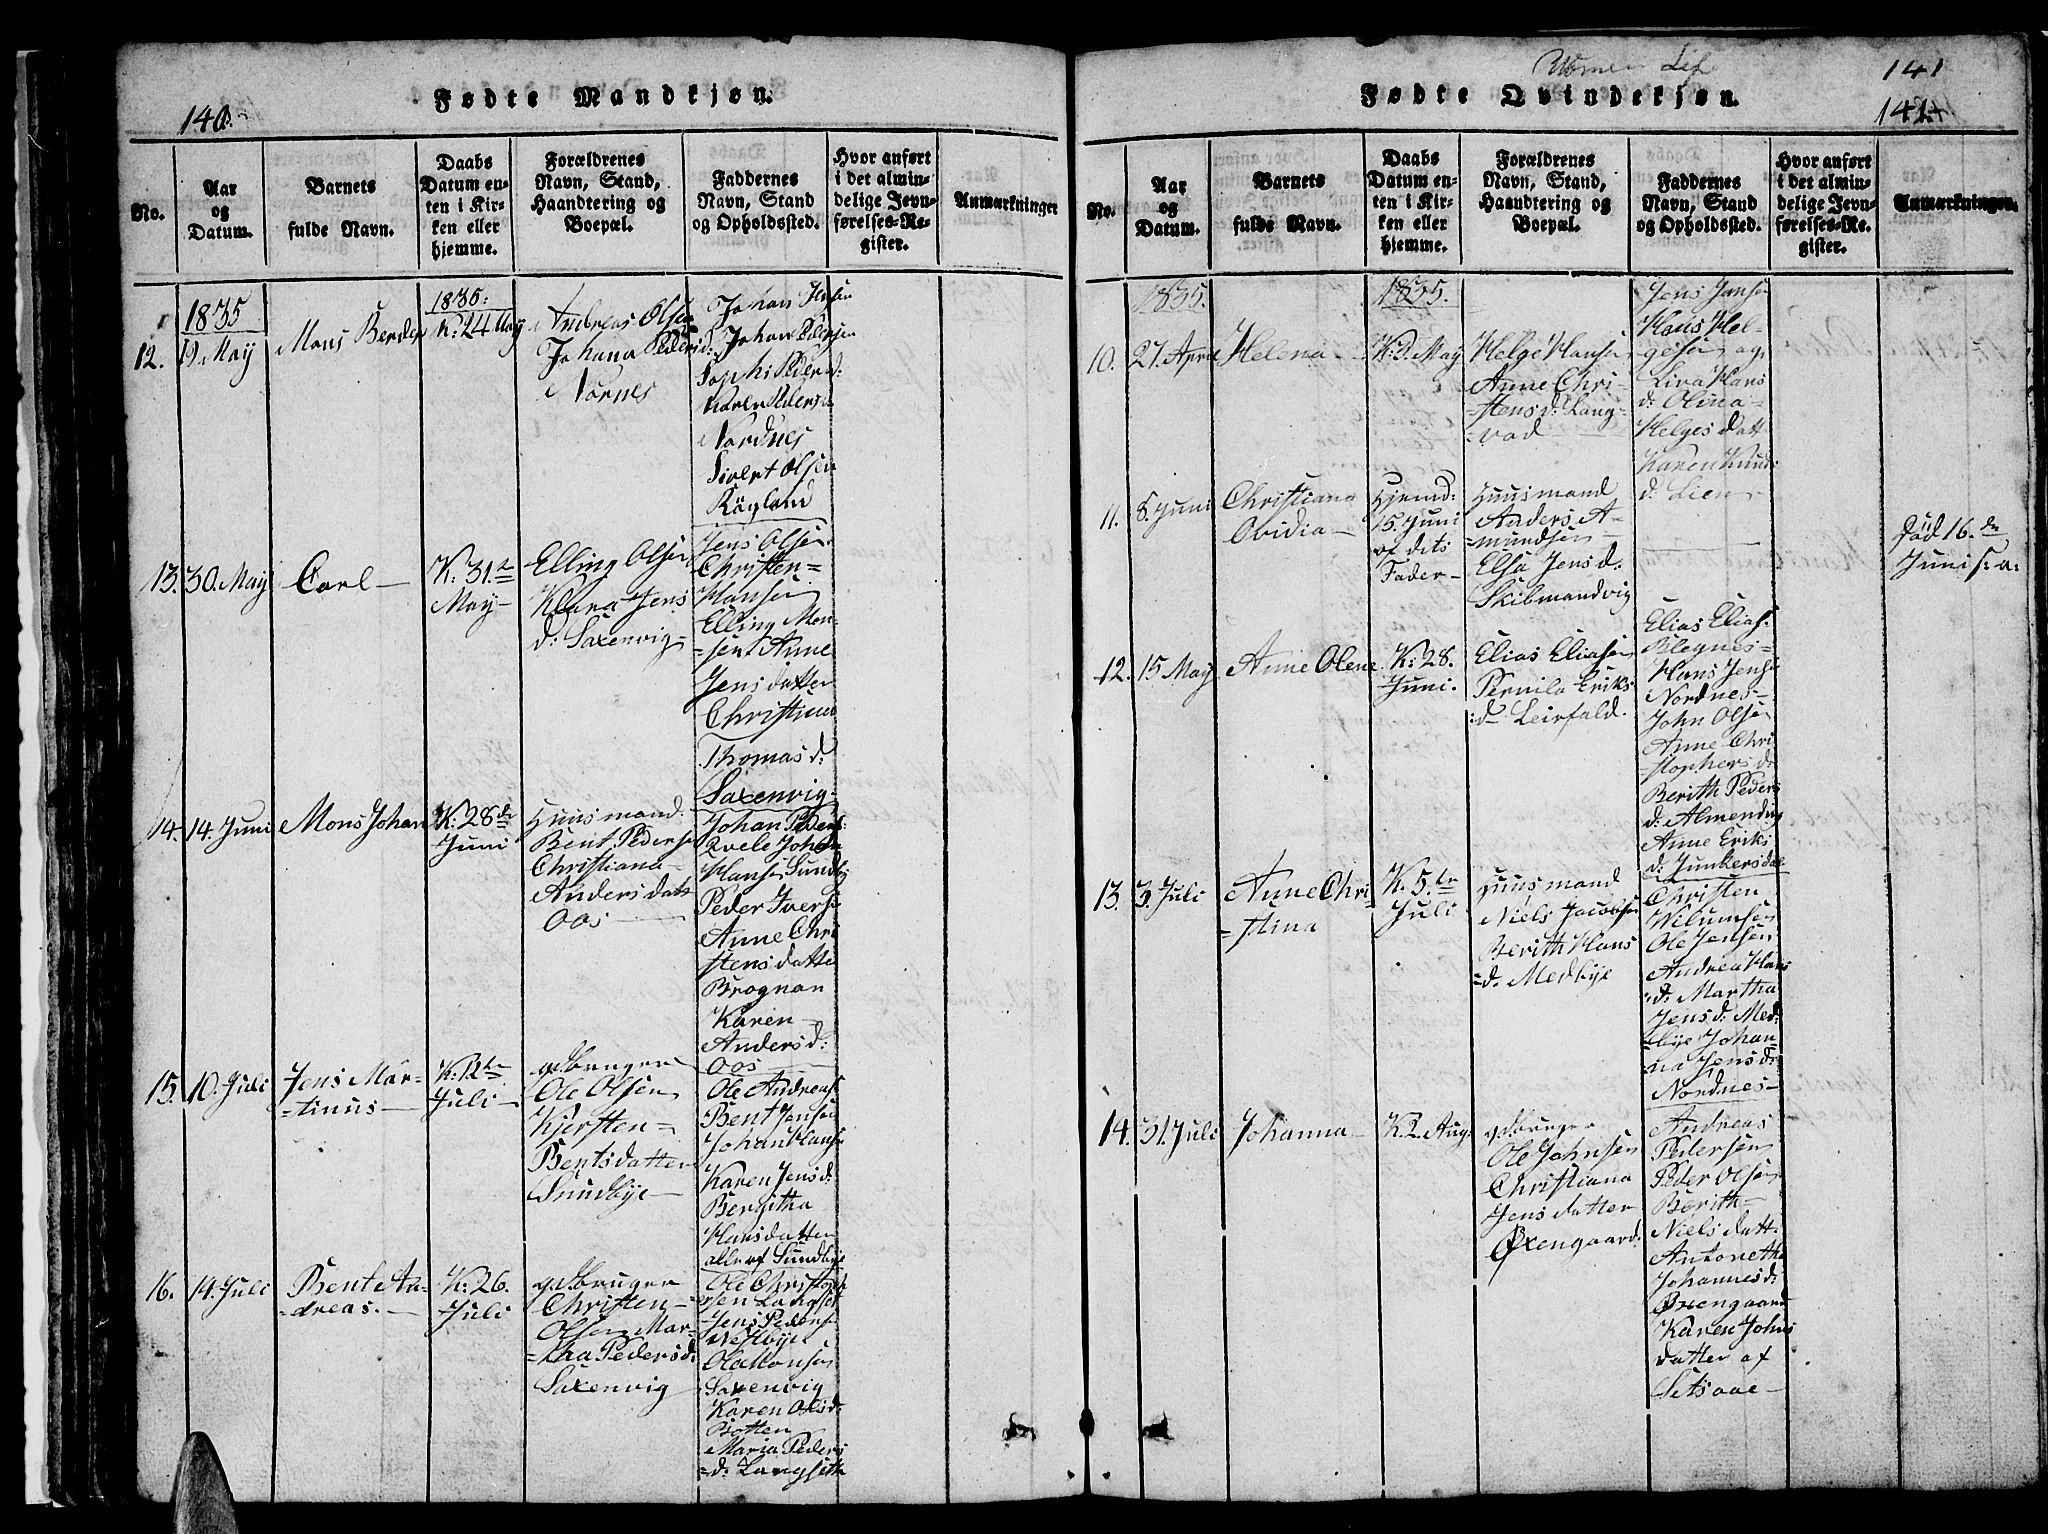 140.
Fødte Mandkjøn.
No.
Aar
og
Datum.
Barnets
fulde Navn.
Daabs
Datum en-
ten i Kir-
ken eller
hjemme.
Forældrenes
Navn, Stand,
Haandtering og
Boepæl.
Faddernes
Navn, Stand
og Opholdssted.
Hvor anført
i det almin-
delige Jevn-
førelses-Re-
gister.
Anmærkninger
1835
12.
19 May
Mons Berder
1835:
K: 24 May
Andreas Olsen
Johana Peders
d:
Nørnes
Johan Jensen
Johan Pedersen
Sophi Peder d:
Karen Peders d
Nordnes
Sivert Olsen
Røgland
13.
30. May
Carl
K: 31.te
May
Elling Olsen
Klara Jens
d: Saxenvig
Jens Olsen
Christen
Hansen
Elling Mon-
=sen Anne
Jensdatter
Christiana
Thomas d:
Saxenvig
14.
14. Juni
Mons Johan
K: 28de
Juni
Huusmand
Bent Pedersen
Christiana
Anders datt
Oos
Johan Peders:
Qvele Johan
Hansen Sundby
Peder Iversen
Anne Chri
stensdatter
Brognan
Karen
Anders d:
Oos
15.
10. Juli
Jens Mar-
=tinus
K: 12te
Juli
gdbruger
Ole Olsen
Kjersten
Bentsdatter
Sundbye
Ole Andreas
Bent Jensen
Johan Hansen
Karen Jens d:
Bergitha
Hansdatter
alle af Sundbye
16.
14. Juli
Bent An-
=dreas.
K: 26.
Juli
gdbruger
Christen
Olsen Mar-
=tha Peders d:
Saxenvig
Ole Christoph
ersen Langset
Jens Peders
Vestbye
Ola Monsen
Saxenvig
Karen Ols d:
Botten
Maria Peders
=d: Langseth
141
141
Fødte Qvindekjøn.
No.
Aar
og
Datum.
Barnets
fulde Navn.
Daabs
Datum en-
ten i Kir-
ken eller
hjemme.
Forældrenes
Navn, Stand,
Haandtering og
Boepæl.
Faddernes
Navn, Stand
og Opholdssted.
Hvor anført
i det almin-
delige Jevn-
førelses-Re-
gister.
Anmærkninger.
1835.
10.
27. April
Helena
1835.
May
Helge Hansen
Anne Chri-
=stens d: Lang-
=vad
Jens Jansen
Hans Hel-
gesen og
Liva Hans
d: Olina
Helges Datt
Karen Knud:
d: Lien
11.
8. Juni
Christiana
Ovidia
Hjemd:
15. Juni
af dets
Fader
Huusmand
Anders A-
=mundsen
Elsa Jens d:
Skibmandvig
Død 16.de
Juni s: a:
12.
15 May
Anne Olene
K: 28.
Juni.
Elias Eliasen
Pernila Eriks
:d Leirfald.
Elias Elias:
Blegnes
Hans Jensen
Nordnes
John Olsen
Anne Chri
=stophers d:
Berith Peders
d: Almending
Anne Eriks
d: Junkersdal
13.
3. Juli
Anne Chri
=stina
K. 5.te
Juli
Huusmand
Niels Jacobsen
Berith Hans
=d: Medbye
Christen
Wilumsen
Ole Jensen
Andrea Hans
d: Martha
Jens d: Med-
=bye Johan-
na Jens d:
Nordnes
14.
31. Juli
Johanna
K. 2. Aug.
gdbruger
Ole Johnsen
Christiana
Jensdatter
Øxengaard.
Andreas
Pedersen
Peder Olsen
Berith
Niels datt:
Antonetha
Johannes d:
Øxengaard
Karen Johns
datter af
Setsaae